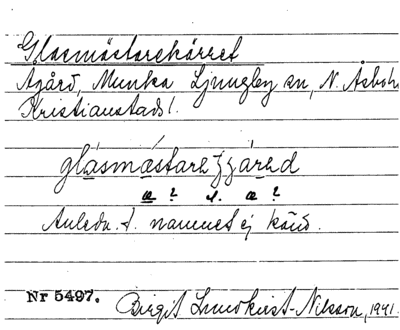 Glasmästarekärret
Agård, Munka Ljungby sn, N. Åsbo h.
Kristianstads l.
glásmæstare
æ ? l. æ ?
Anledn. t. namnet ej känd.
Nr 5497. Birgit Lundkvist-Nilsson, 1941.